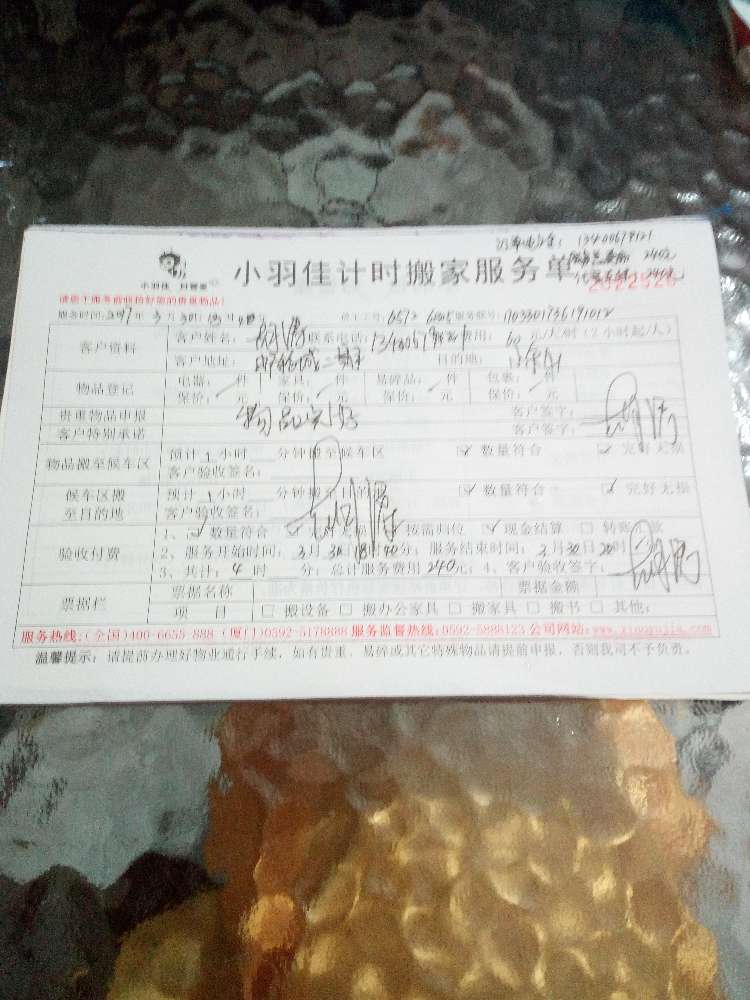 订单电话: 13400678121
2402
小羽佳 计时搬家服务单
小羽佳 好管家
2022526
请您于服务前收拾好您的贵重物品!
服务时间: 年3月30日 时 员工工号: 6572 6605 服务账号:
客户资料 客户姓名: 联系电话: 服务费用: 60 元/人/时 (2小时起/人)
客户地址: 二期 目的地:
物品登记 电器: / 件 家具: / 件 易碎品: / 件 包裹: / 件
保价: / 件 保价: / 件 保价: / 件 保价: / 件
贵重物品申报 物品完好 客户签字:
客户特别承诺 客户签字:
物品搬至候车区 预计 1 小时 分钟搬至候车区 ☑ 数量符合 ☑ 完好无损
客户验收签名:
候车区搬至目的地 预计 1 小时 分钟搬至目的地 ☑ 数量符合 ☑ 完好无损
客户验收签名:
验收付费 1、☑ 数量符合 ☑ 完好无损 ☑ 按需归位 ☑ 现金结算 □ 转账付款
2、服务开始时间: 3月30日 时40分; 服务结束时间: 3月30日20时
3、共计: 4 时 分; 总计服务费用 240 元; 4、客户验收签字:
票据栏 票据名称 票据金额
项 目 □ 搬设备 □ 搬办公家具 □ 搬家具 □ 搬书 □ 其他:
服务热线:(全国)400-6655 888 (厦门)0592-5178888 服务监督热线:0592-5888123 公司网站:www.xiaoyujia.com
温馨提示: 请提前办理好物业通行手续, 如有贵重、易碎或其它特殊物品请提前申报, 否则我司不予负责。